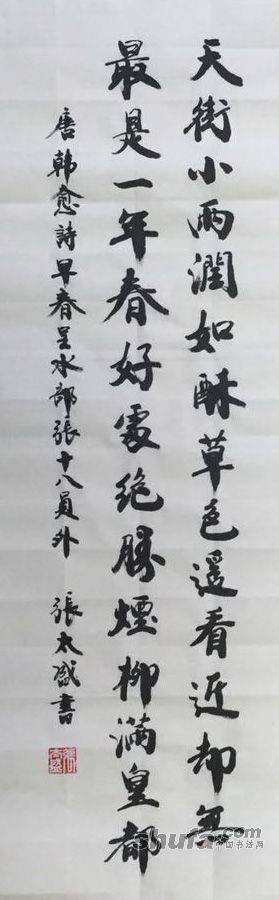 天街小雨潤如酥草色遥看近却無
最是一年春好處絶勝煙柳滿皇都
唐韓愈詩早春呈水部張十八員外 張太盛書
shufa.com
中国书法网